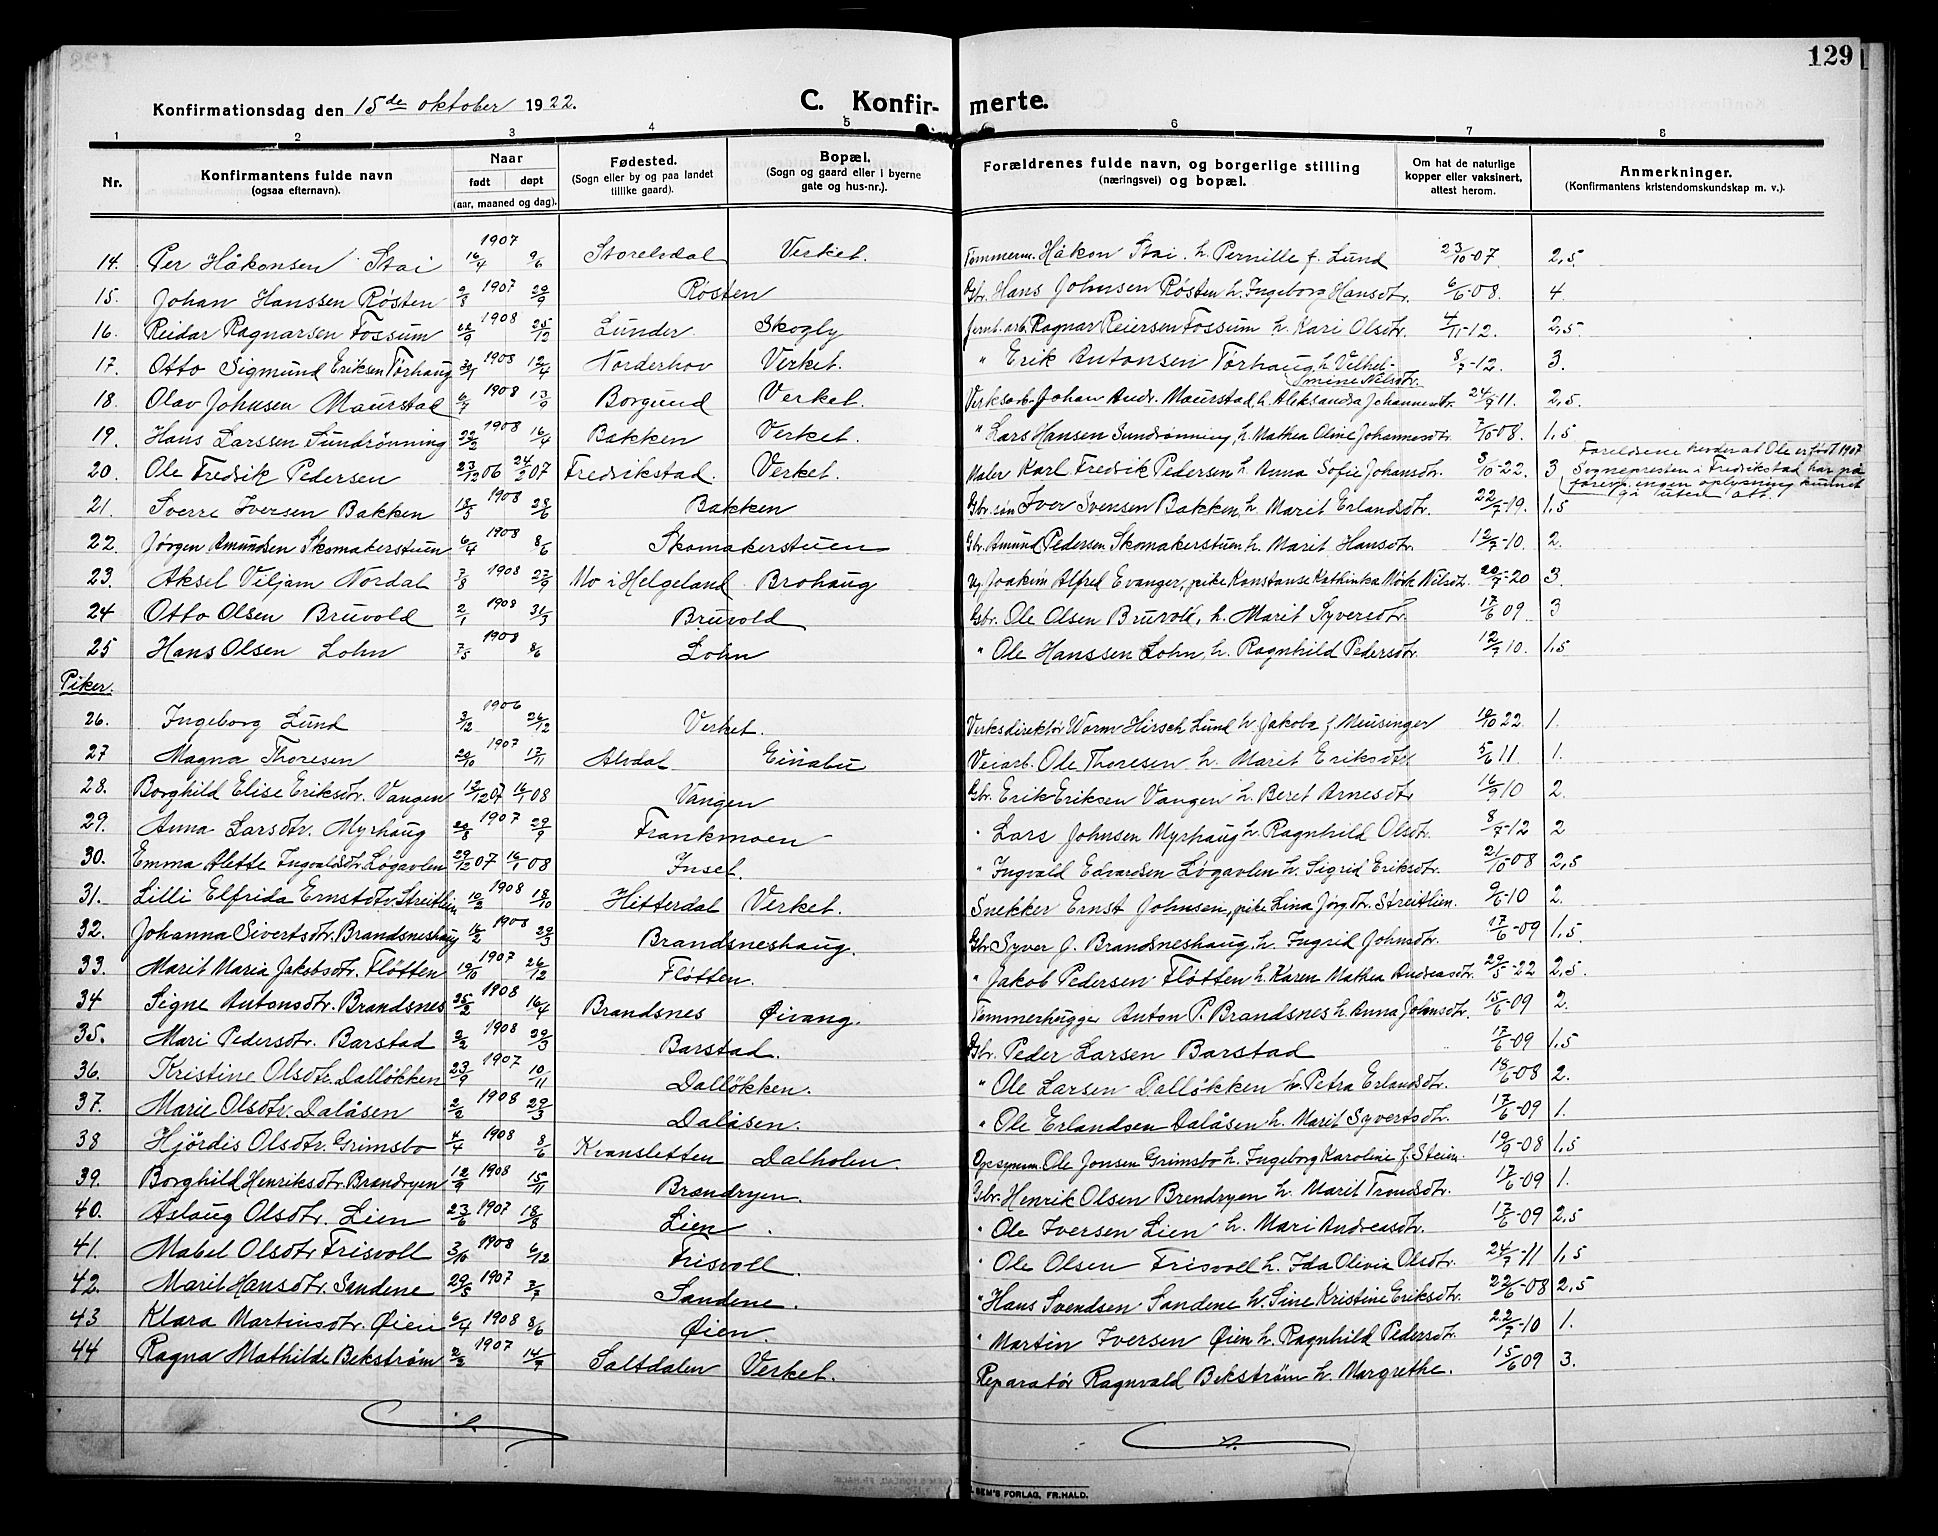 129
Konfirmationsdag den 15de oktober 1922.
C. Konfirmerte.
1 2 3 4 5 6 7 8
Nr. Konfirmantens fulde navn (ogsaa efternavn). Naar født døpt (aar, maaned og dag). Fødested. (Sogn eller by og paa landet tillike gaard). Bopæl. (Sogn og gaard eller i byerne gate og hus-nr.). Forældrenes fulde navn, og borgerlige stilling (næringsvei) og bopæl. Om hat de naturlige kopper eller vaksinert, attest herom. Anmerkninger. (Konfirmantens kristendomskundskap m. v.).
14. Per Håkonsen Stai 1907 16/4 9/6 Storelvdal Verket. Tømmerm. Håkon Stai. h. Pernille f. Lund 23/10-07. 2,5.
15. Johan Hanssen Røsten 1907 29/9 Røsten Gbr. Hans Johnsen Røsten h. Ingeborg Hansdtr. 6/6-08. 4
16. Reidar Ragnarsen Fossum 22/9 1908 25/12 Lunder Skogly Jernb.arb. Ragnar Reiersen Fossum h. Kari Olsdtr. 4/11-12. 2,5
17. Otto Sigmund Eriksen Tørhaug 1908 12/4 Norderhov Verket. " Erik Antonsen Tørhaug h. Vilhelmine Nilsdtr. 8/7-12. 3.
18. Olav Johnsen Maurstad 6/7 1908 13/9 Borgund Verket. Verksarb. Johan Andr. Maurstad h. Aleksandra Johannesdtr. 24/9 11. 2,5.
19. Hans Larssen Sundrønning 22/2 1908 16/4 Bakken Verket. " Lars Hansen Sundrønning, h. Mathea Oline Johannesdtr. 7/10-08. 1,5
20. Ole Fredrik Pedersen 23/12 06 24/2 07 Fredrikstad. Verket. Maler Karl Fredrik Pedersen h. Anna Sofie Johansdtr. 3/10-22. 3 Foreldrene hevder at Ole er født 1907 Sognepresten i Fredrikstad har på foresp. ingen oplysning kunnet gi uten att.
21. Sverre Iversen Bakken 18/3 1908 28/6 Bakken Gbr.søn Iver Svensen Bakken, h. Marit Erlandsdtr. 22/7-19. 1,5
22. Jørgen Amundsen Skomakerstuen 6/4 1908 8/6 Skomakerstuen Gbr. Amund Pedersen Skomakerstuen h. Marit Hansdtr. 12/7-10. 2.
23. Aksel Viljam Nordal 7/8 1908 27/9 Mo i Helgeland Brohaug Joakim Alfred Evanger, pike Konstanse Kathinka Mørk Nilsdtr. 20/7-20 3.
24 Otto Olsen Bruvold 2/1 1908 31/3 Bruvold Gbr. Ole Olsen Bruvold, h. Marit Syversdtr. 17/6 09. 3
25 Hans Olsen Lohn 7/5 1908 8/6 Lohn " Ole Hanssen Lohn, h. Ragnhild Pedersdtr. 12/7 10. 1,5
Piker.
26. Ingeborg Lund 3/12 1906 26/12 Verket. Verksdirektør Worm Hirsch Lund h. Jakoba f. Meusinger 18/10 22. 1.
27 Magna Thoresen 20/10 1907 17/11 Alvdal Einabu Veiarb. Ole Thoresen h. Marit Eriksdtr 5/6 11. 1.
28. Borghild Elise Eriksdtr. Vangen 12/12 07 16/1 08 Vangen Gbr. Erik Eriksen Vangen h. Beret Arnesdtr 16/9 10 2.
29. Anna Larsdtr. Myrhaug 20/8 1907 29/9 Frankmoen " Lars Johnsen Myrhaug h. Ragnhild Olsdtr. 8/7-12 2
30. Emma Alette Ingvaldsdtr. Løgavlen 29/12 07 16/1 08 Inset. " Ingvald Edvardsen Løgavlen h. Sigrid Eriksdtr. 21/10-08 2,5
31. Lilli Elfrida Ernstdtr. Streitlien 10/3 1908 18/10 Hitterdal Verket. Snekker Ernst Johnsen, pike Lina Jørg.dtr. Streitlien. 9/6-10 2.
32. Johanna Sivertsdtr. Brandsneshaug 16/2 1908 29/3 Brandsneshaug. Gbr. Syver J. Brandsneshaug h. Ingrid Johnsdtr. 17/6-09 1,5.
33. Marit Maria Jakobsdtr. Fløtten 19/10 1907 26/12 Fløtten. " Jakob Pedersen Fløtten h. Karen Mathea Andreasdtr. 29/5-22 2,5.
34 Signe Antonsdtr. Brandsnes 25/2 1908 16/4 Brandsnes Øivang. Tømmerhugger Anton P. Brandsnes h. Anna Johansdtr. 15/6-09 2.
35. Mari Pedersdtr. Barstad 2/2 1908 29/3 Barstad. Gbr. Peder Larsen Barstad 17/6-09 1,5
36. Kristine Olsdtr. Dalløkken 23/9 1907 10/11 Dalløkken. " Ole Larsen Dalløkken h. Petra Erlandsdtr. 18/6-08 2.
37. Marie Olsdtr. Dalåsen 2/2 1908 29/3 Dalåsen. " Ole Erlandsen Dalåsen h. Marit Syvertsdtr. 17/6-09 1.
38 Hjördis Olsdtr. Grimsbo 4/4 1908 8/6 Kvansletten Dalholen. Opsynsm. Ole Jonsen Grimsbo h. Ingeborg Karoline f. Steim. 19/9-08 1,5
39. Borghild Henriksdtr. Brændryen 12/9 1908 15/11 Brændryen. Gbr. Henrik Olsen Brendryen h. Marit Trondsdtr. 17/6-09 1.
40. Aslaug Olsdtr. Lien 23/6 1907 18/8 Lien " Ole Iversen Lien h. Mari Andreasdtr. 17/6-09 2,5
41. Mabel Olsdtr Frisvoll 3/10 1908 6/12 Frisvoll. " Ole Olsen Frisvoll h. Ida Olivia Olsdtr. 24/7-11 1,5
42. Marit Hansdtr. Sandene 29/5 1907 7/7 Sandene. " Hans Svendsen Sandene h. Sine Kristine Eriksdtr. 22/6-08 2,5
43 Klara Martinsdtr. Øien 6/4 1908 8/6 Øien. " Martin Iversen Øien h. Ragnhild Pedersdtr. 22/7-10 1.
44 Ragna Mathilde Bekstrøm 2/3 1907 14/7 Saltdalen Verket. Reparatør Ragnvald Bekstrøm h. Margrethe. 15/6 09 3.
SEM'S FORLAG, FR.HALD.